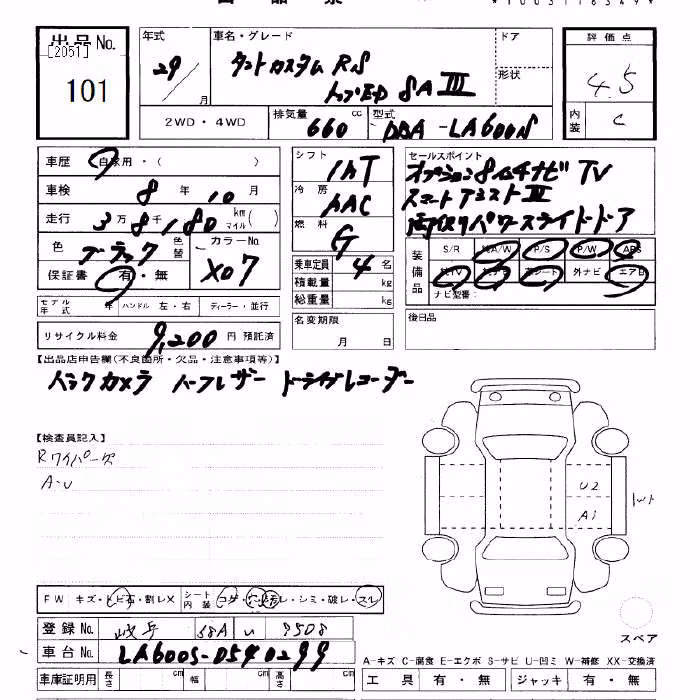 出品No. [2051] 101
年式 29 年 月
車名・グレード タントカスタム RS
トップED SAⅢ
ドア
形状
評価点 4.5
内装 C
2WD・4WD 排気量 660 cc 型式 DBA-LA600S
車歴 自家用・( )
車検 8 年 10 月
走行 3万8千180 km マイル ( )
色 ブラック 色替 カラーNo. X07
保証書 有・無
シフト IAT
冷房 AAC
燃料 G
乗車定員 4 名
積載量 kg
総重量 kg
セールスポイント
オプション8インチナビ TV
スマートアシストⅢ
両側パワースライドドア
装備品 S/R 純A/W P/S P/W ABS
純TV 純ナビ 革シート 外ナビ エアB
ナビ型番:
モデル年式 年 ハンドル 左・右 ディーラー・並行
名変期限 月 日
後日品
リサイクル料金 9,200 円 預託済
【出品店申告欄(不良箇所・欠品・注意事項等)】
バックカメラ ハーフレザー ドライブレコーダー
【検査員記入】
Rワイパーズ
A・U
U2
A1
FW キズ・トビ石・割レX シート内装 コゲ・穴・汚レ・シミ・破レ・スレ
登録No. 岐阜 58A い 9508
車台No. LA600S-0540299
スペア
A-キズ C-腐食 E-エクボ S-サビ U-凹ミ W-補修 XX-交換済
車庫証明用 長さ cm 幅 cm 高さ cm
工具 有・無 ジャッキ 有・無